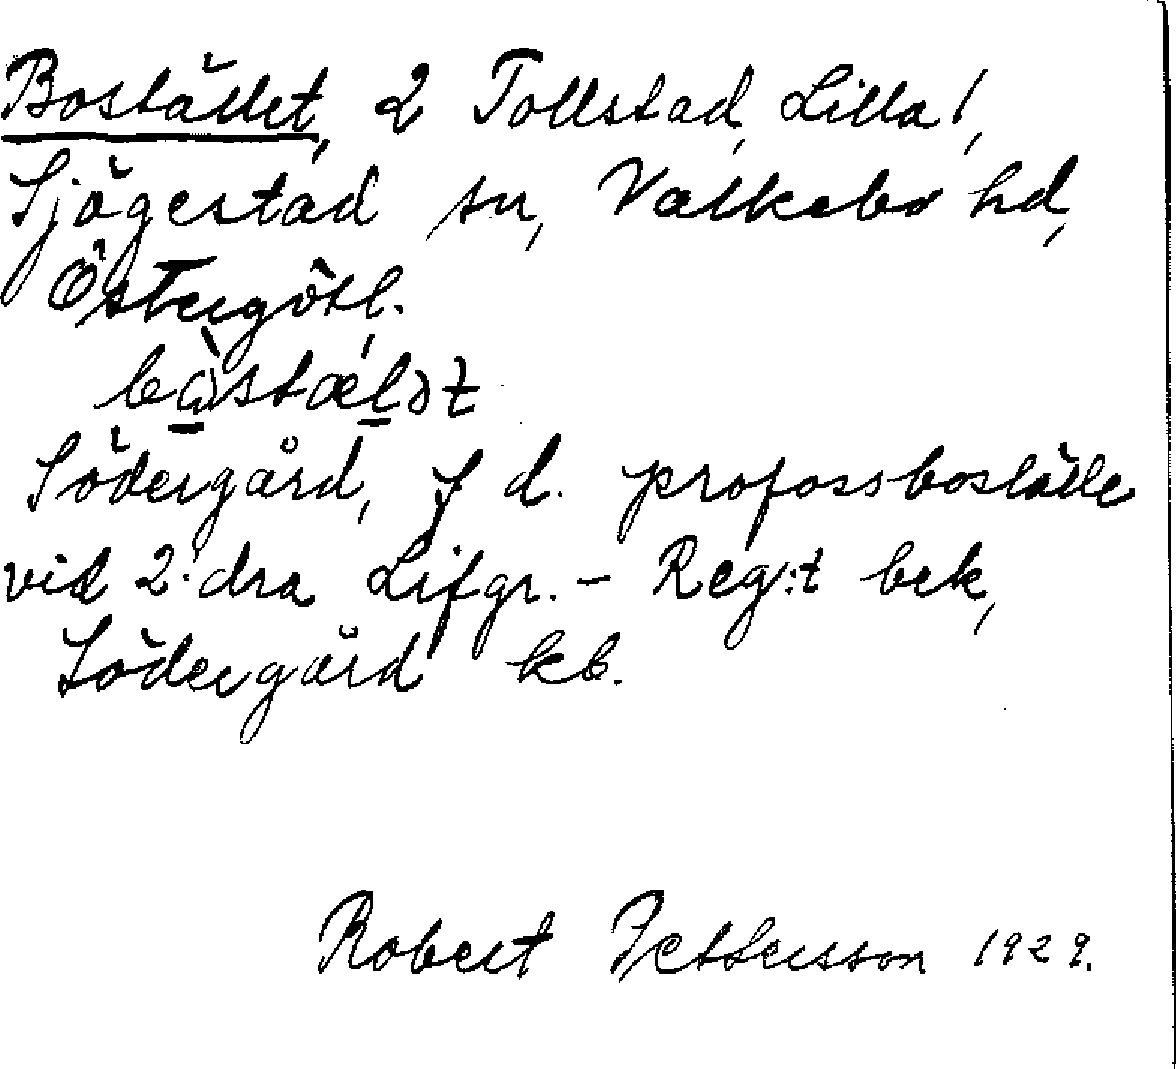 Bostället, 2 Tollstad, Lilla 1,
Sjögestad sn, Valkebo hd,
Östergötl.
bò̠stǽl̠ət
Södergård, f d. profossboställe
vid 2:dra Lifgr. - Reg:t bek,
Södergård kb.
Robert Pettersson 1929.